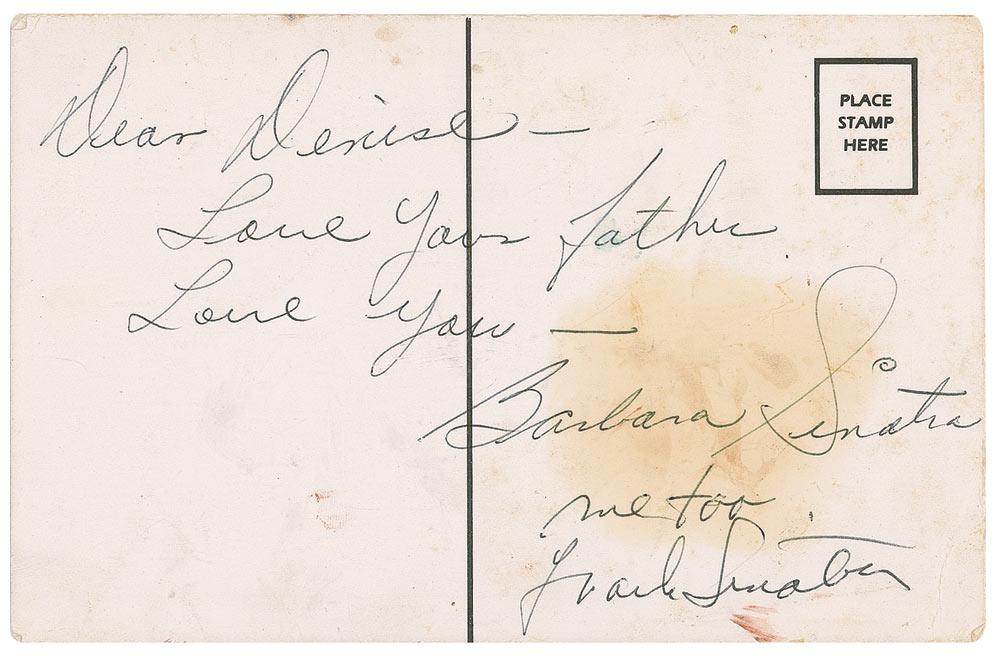 Dear Denise —
PLACE
STAMP
HERE
Love Your father
Love You —
Barbara Sinatra
me too
Frank Sinatra